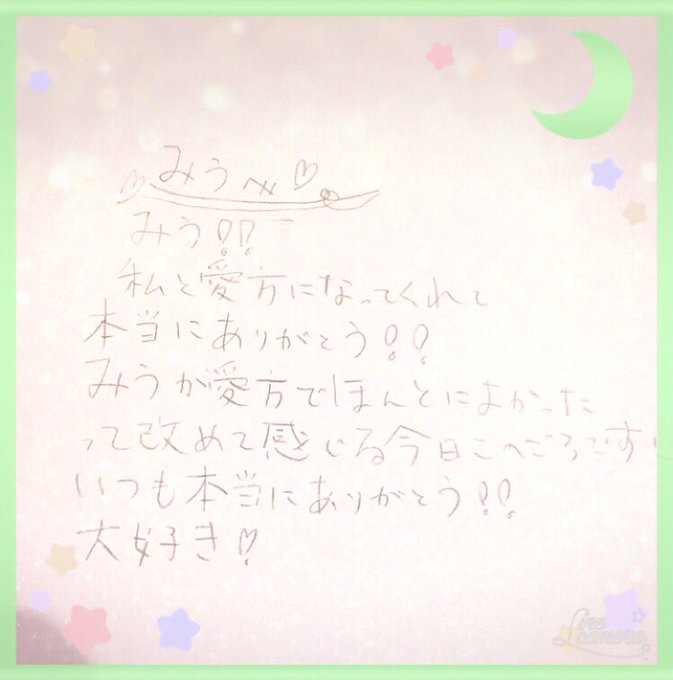 みうへ♡
みう!!
私と愛方になってくれて
本当にありがとう!!
みうが愛方でほんとによかった
って改めて感じる今日このごろです!
いつも本当にありがとう!!
大好き♡
Line camera